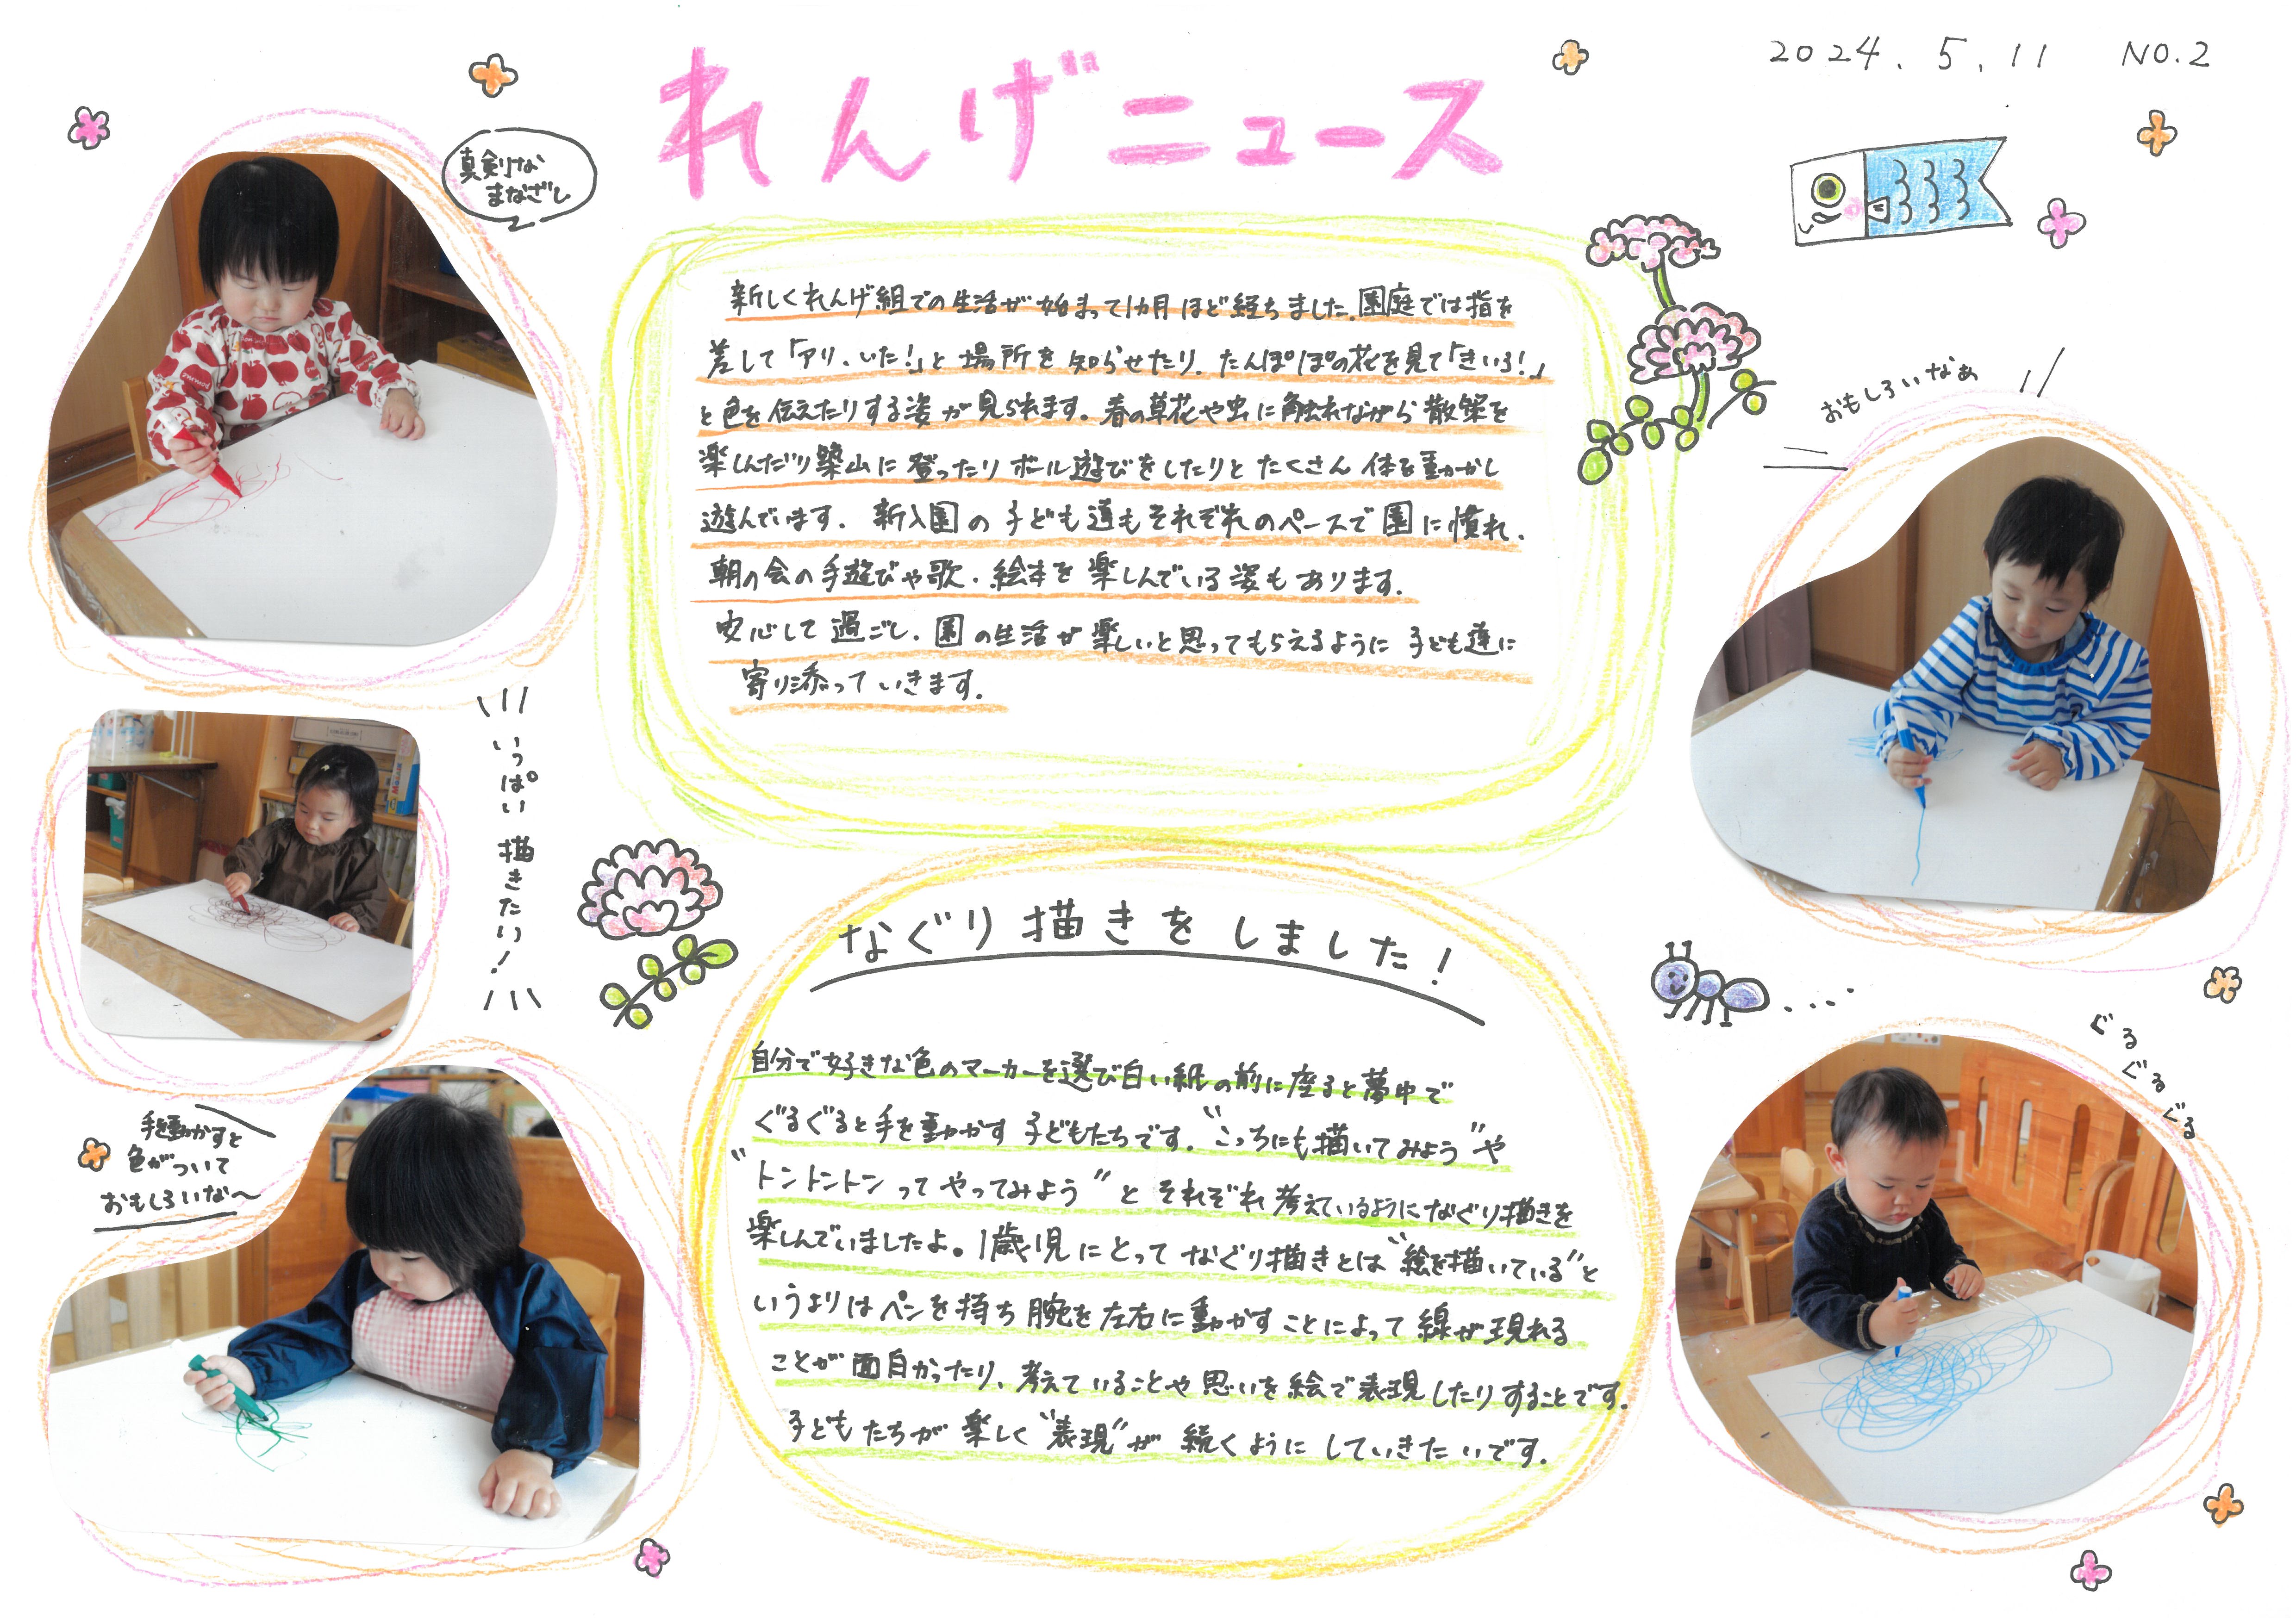 2024.5.11 NO.2
れんげニュース
真剣な
まなざし
新しくれんげ組での生活が始まって1カ月ほど経ちました。園庭では指を
差して「アリ、いた!」と場所を知らせたり、たんぽぽの花を見て「きいろ!」
と色を伝えたりする姿が見られます。春の草花や虫に触れながら散策を
楽しんだり築山に登ったりボール遊びをしたりとたくさん体を動かし
遊んでいます。新入園の子ども達もそれぞれのペースで園に慣れ、
朝の会の手遊びや歌、絵本を楽しんでいる姿もあります。
安心して過ごし、園の生活が楽しいと思ってもらえるように子ども達に
寄り添っていきます。
おもしろいなぁ
いっぱい描きたい!
なぐり描きをしました!
自分で好きな色のマーカーを選び白い紙の前に座ると夢中で
ぐるぐると手を動かす子どもたちです。“こっちにも描いてみよう”や
“トントントンってやってみよう”とそれぞれ考えているようになぐり描きを
楽しんでいましたよ。1歳児にとってなぐり描きとは“絵を描いている”と
いうよりはペンを持ち腕を左右に動かすことによって線が現れる
ことが面白かったり、考えていることや思いを絵で表現したりすることです。
子どもたちが楽しく“表現”が続くようにしていきたいです。
手を動かすと
色がついて
おもしろいな〜
ぐるぐるぐる